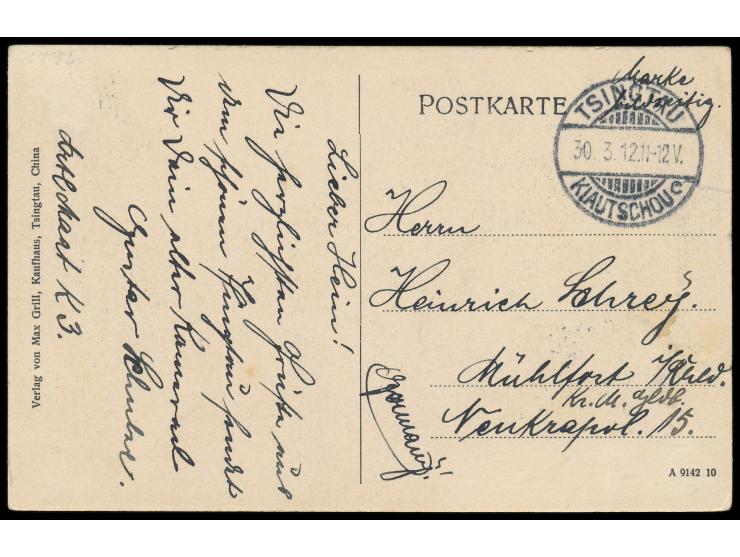 POSTKARTE
Marke
bildseitig.
TSINGTAU
30. 3. 12.11-12 V.
KIAUTSCHOU
Lieber Hein!
Die herzlichsten Grüße aus
dem schönen Tsingtau sendet
Dir Dein alter Kamerad
Gustav
K 3.
Herrn
Heinrich Schrey.
Mühlfort i/Rhld.
Kr. M. Gldb.
Neukrapol. 15.
Germany.
Verlag von Max Grill, Kaufhaus, Tsingtau, China
A 9142 10